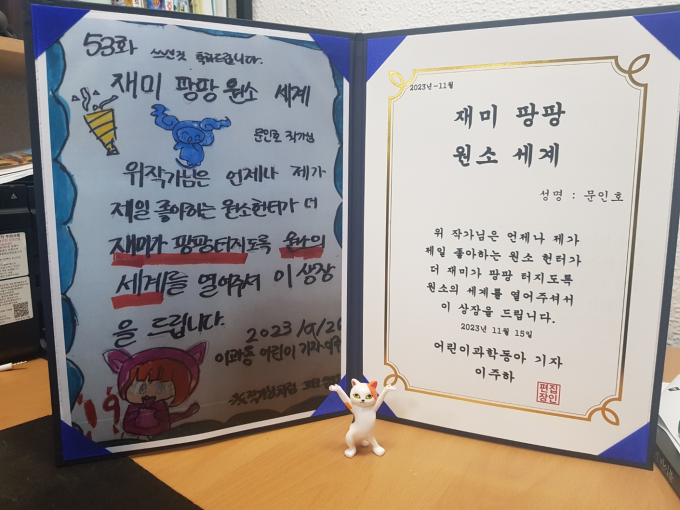 53화 쓰신것 축하드립니다.
재미 팡팡 원소 세계
문인호 작가님
위작가님은 언제나 제가
제일 좋아하는 원소헌터가 더
재미가 팡팡터지도록 원소의
세계를 열어주셔서 이 상장
을 드립니다.
이과동 어린이 기자
2023년-11월
재미 팡팡
원소 세계
성명 : 문인호
위 작가님은 언제나 제가
제일 좋아하는 원소 헌터가
더 재미가 팡팡 터지도록
원소의 세계를 열어주셔서
이 상장을 드립니다.
2023년 11월 15일
어린이과학동아 기자
이주하
편집
장인